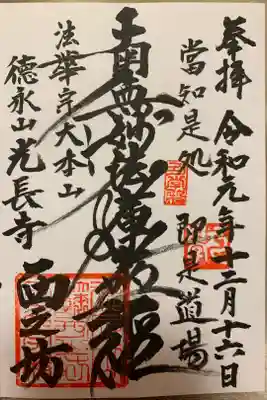 奉拝 令和元年十二月十六日
當知是処 即是道場
南無妙法蓮華経
法華宗大本山
徳永山光長寺
西之坊